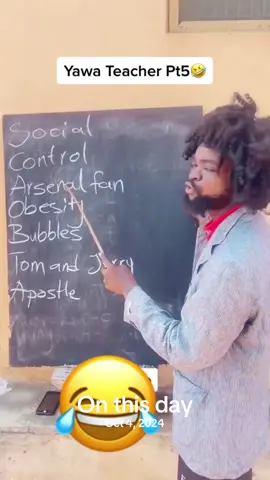 Yawa Teacher Pt5🤣
Social
Control
Arsenal fan
Obesity
Bubbles
Tom and Jerry
Apostle
On this day
Oct 4, 2024